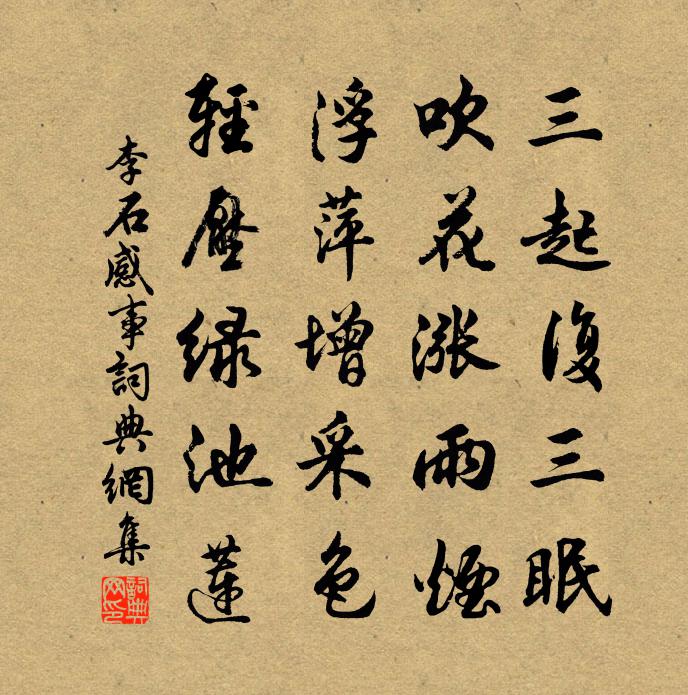 三起復三眠
吹花漲雨煙
浮萍增采色
輕壓绿池蓮
李石感事詞典網集
詞典网印